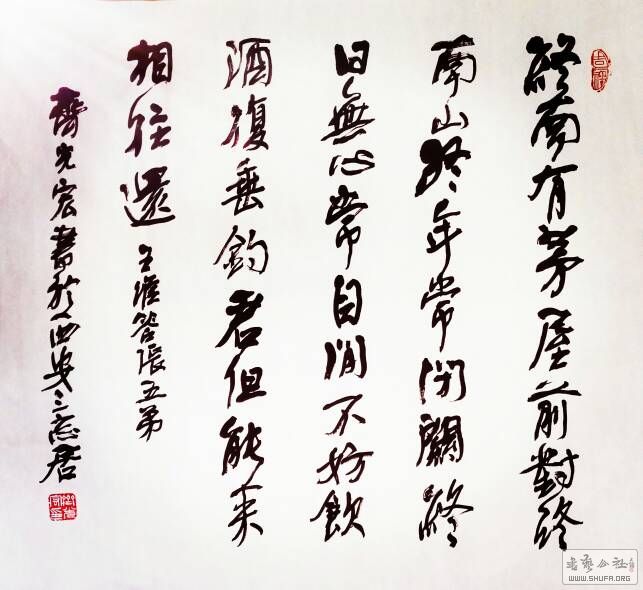 終南有茅屋前對終
南山終年常閉關終
日無心常自閒不妨飲
酒復垂釣君但能来
相往還
王維答張五弟
齊光宏書於西安三居
吉祥
书艺公社
WWW.SHUFA.ORG